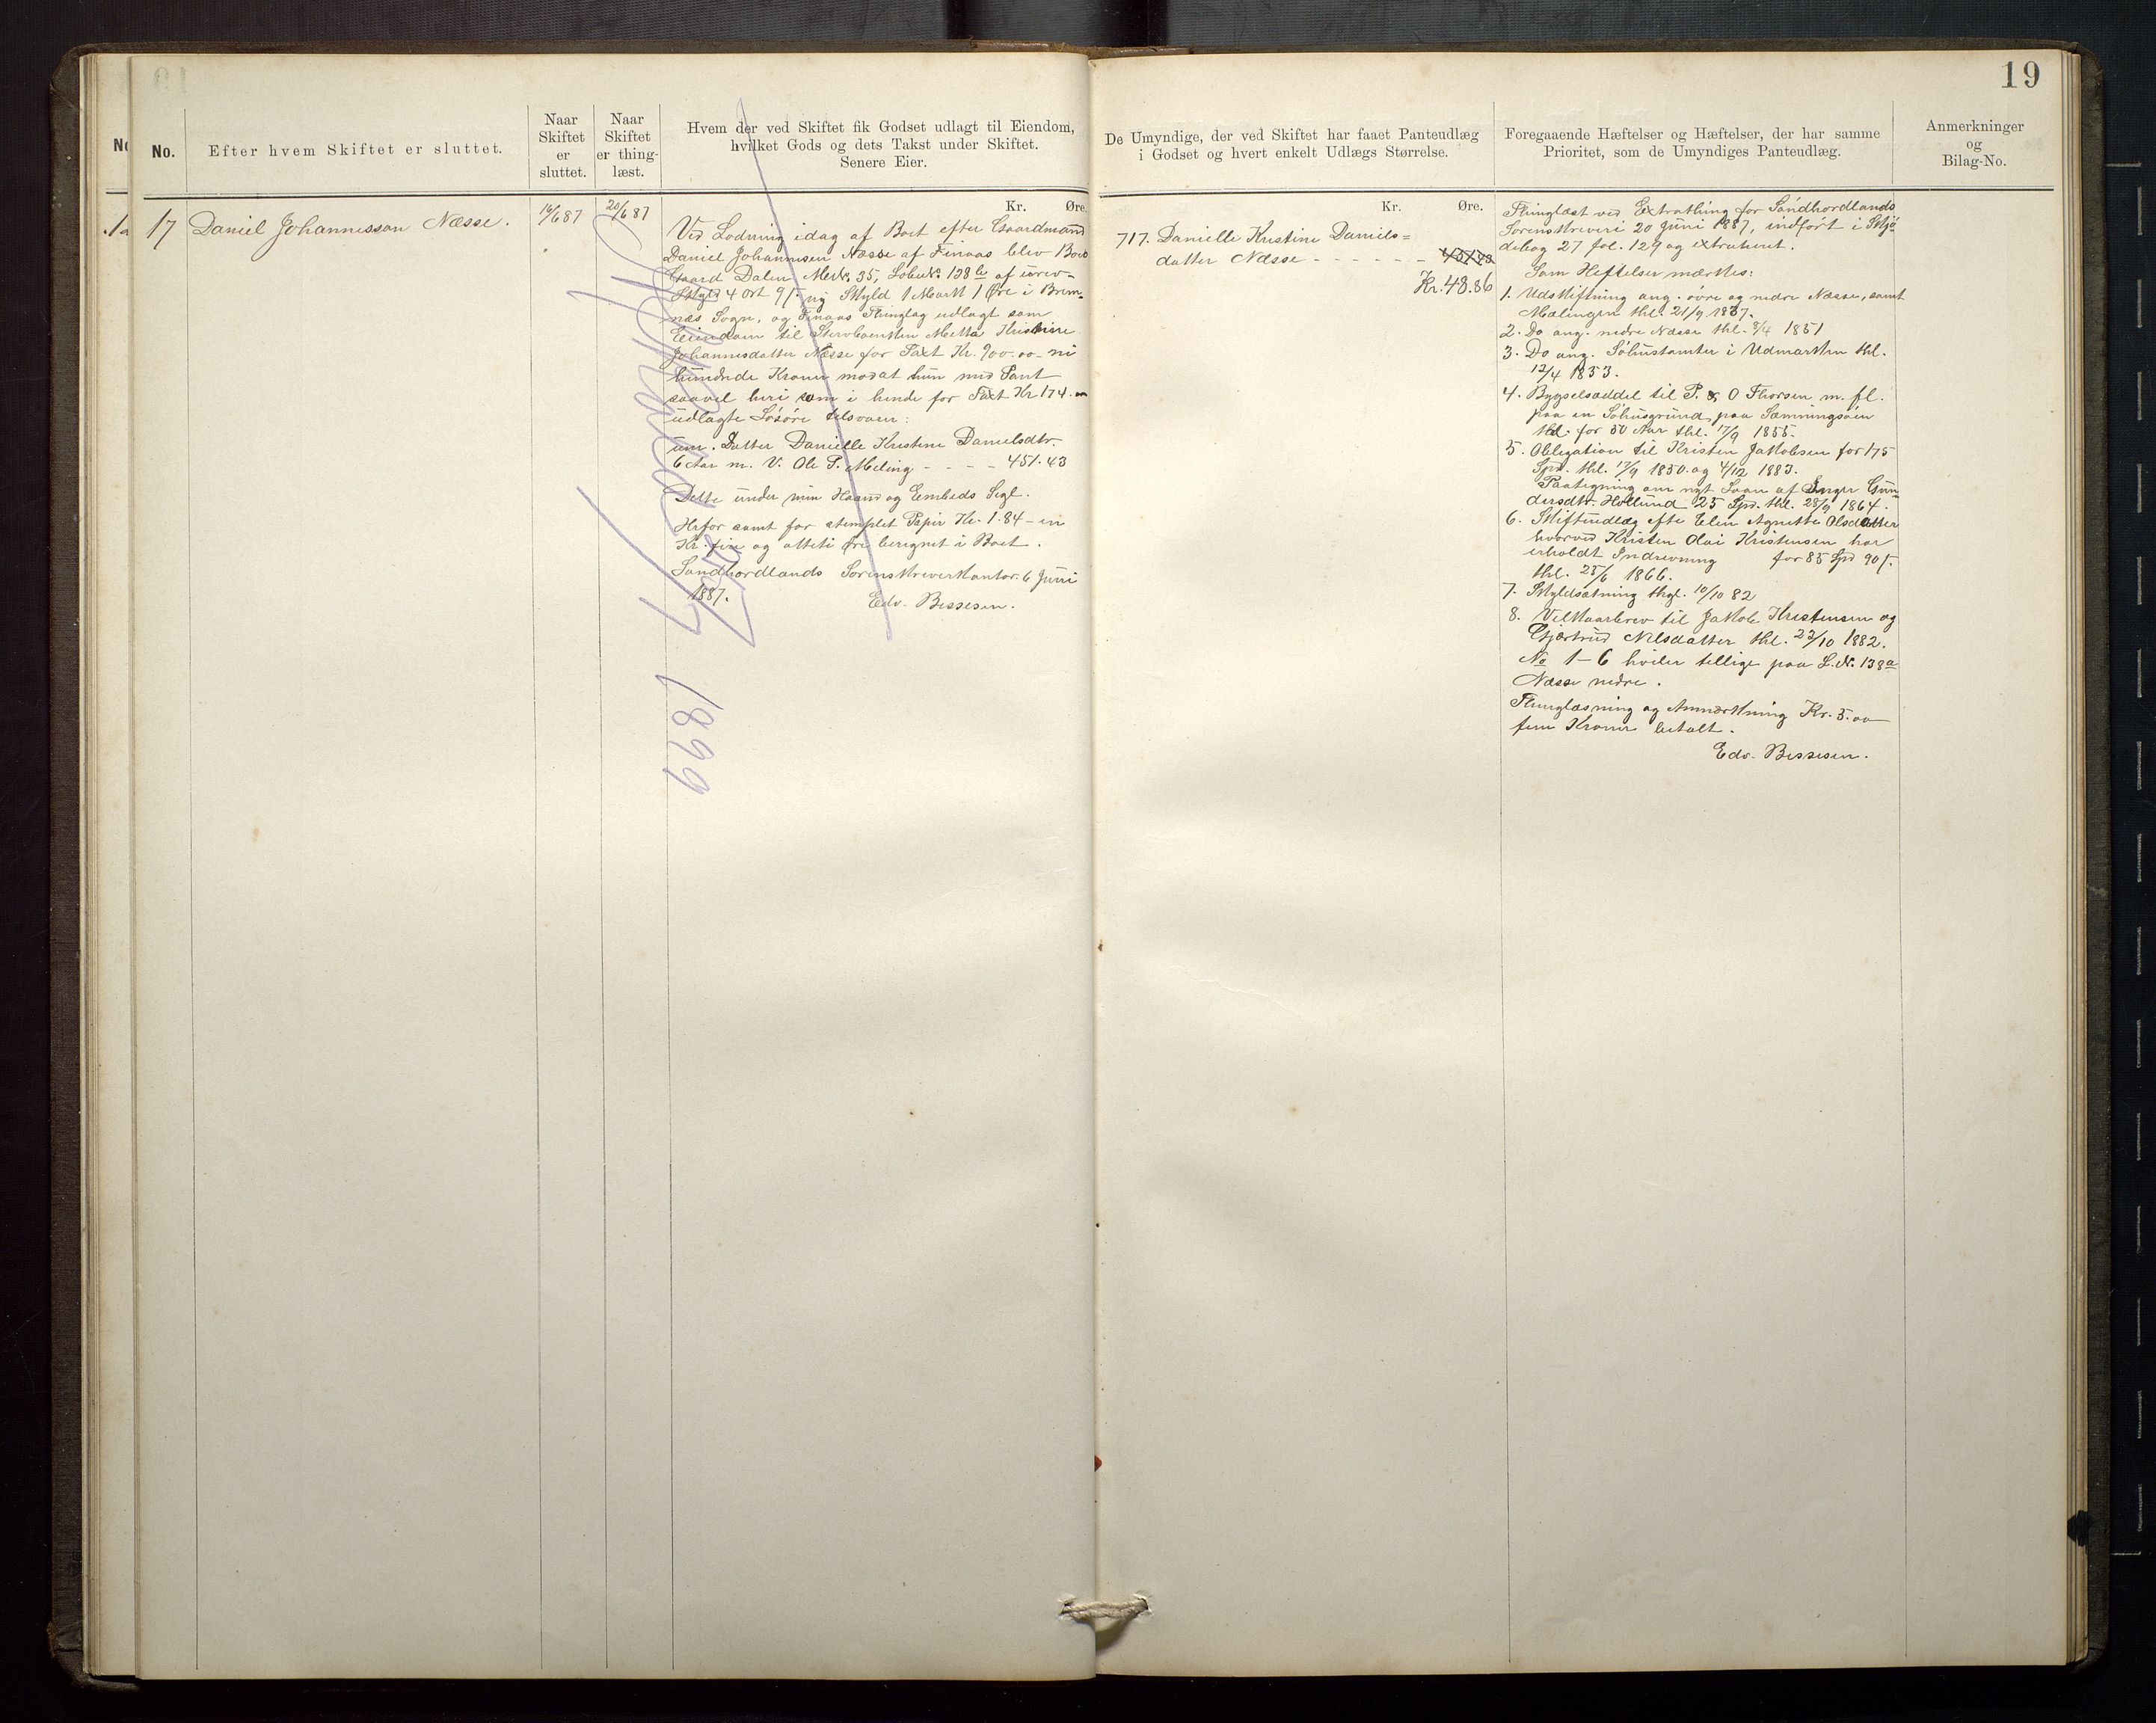 19
No.
Efter hvem Skiftet er sluttet.
Naar
Skiftet
er
sluttet.
Naar
Skiftet
er thing-
læst.
Hvem der ved Skiftet fik Godset udlagt til Eiendom,
hvilket Gods og dets Takst under Skiftet.
Senere Eier.
De Umyndige, der ved Skiftet har faaet Panteudlæg
i Godset og hvert enkelt Udlægs Størrelse.
Foregaaende Hæftelser og Hæftelser, der har samme
Prioritet, som de Umyndiges Panteudlæg.
Anmerkninger
og
Bilag-No.
17 Daniel Johannesson Næsse.
16/6 87
20/6 87
Kr. Øre.
Ved Lodning idag af Boet efter Gaardmand
Daniel Johannesen Næsse af Finaas blev Boets
Gaard Dalen Merk. 35, Löbek. 138 b af urev-
Skyld 4 ort 9 ny Skyld 1 Mark 1 Øre i Brem-
næs Sogn, og Finaas Thinglag udlagt som
Eiendom til Stervboenken Metta Kristine
Johannesdatter Næsse for Taxt Kr. 900.00 - ni
hundrede Kroner modat hun med Pant
saavel heri som i hende for Taxt Kr 174.
udlagte Lösöre tilsvarer:
um. Datter Danielle Kristine Danielsdtr.
6 Aar m. V. Ole P. Meling - - - - 451.43
Dette under min Haand og Embeds Segl.
Herfor samt for stemplet Papir Kr. 1.84 - en
Kr. fire og otteti öre beregnet i Boet.
Söndhordlands Sorenskriverkontor 6 Juni
1887.
Edv. Bessesen.
1899
Kr. Øre.
717. Danielle Kristine Daniels=
datter Næsse - - - - - - 451.43
Kr. 48.86
Thinglæst ved Extrathing for Söndhordlands
Sorenskriveri 20 Juni 1887, indfört i Skjö-
debog 27 fol. 129 og extraheret.
Som Heftelser mærkes:
1. Udskiftning ang. övre og nedre Næsse, samt
Mælingen thl. 21/9 1837.
2. Do ang. nedre Næsse thl. 8/4 1851
3. Do ang. Söhustomter i Udmarken thl.
12/4 1853.
4. Bygselsaddel til P. & O Thorsen m. fl.
paa en Söhusgrund paa Sæmningsöen
thl. for 50 Aar thl. 17/9 1855.
5. Obligation til Kristen Jakobsen for 175
Spd. thl. 17/9 1850 og 4/12 1883.
Paategning om nyt Laan af Inger Gun-
dersdtr. Hollund 25 Spd. thl. 28/9 1864.
6. Skifteudlæg efte Elen Agnette Olsdatter
hvorved Kristen Olai Kristensen har
erholdt Indrevning for 85 Spd 90 ß.
thl. 25/6 1866.
7. Skyldsætning thgl. 10/10 82
8. Vilkaarbrev til Jakob Kristensen og
Gjærtrud Nilsdatter thl. 23/10 1882.
No 1-6 hviler tillige paa L.N. 138a
Næsse nedre.
Thinglæsning og Anmærkning Kr. 5.00
fem Kroner betalt.
Edv. Bessesen.